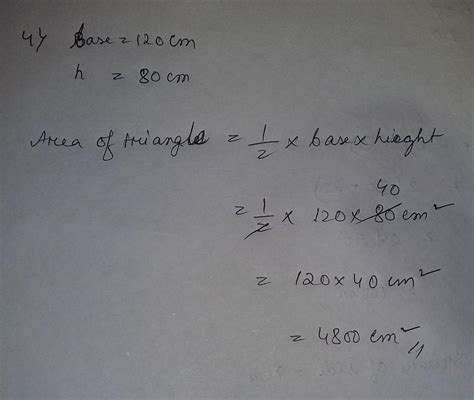 4) Base = 120 cm
h = 80 cm
Area of triangle = 1/2 × base × hieght
= 1/2 × 120 × 80 cm² 40
= 120 × 40 cm²
= 4800 cm²